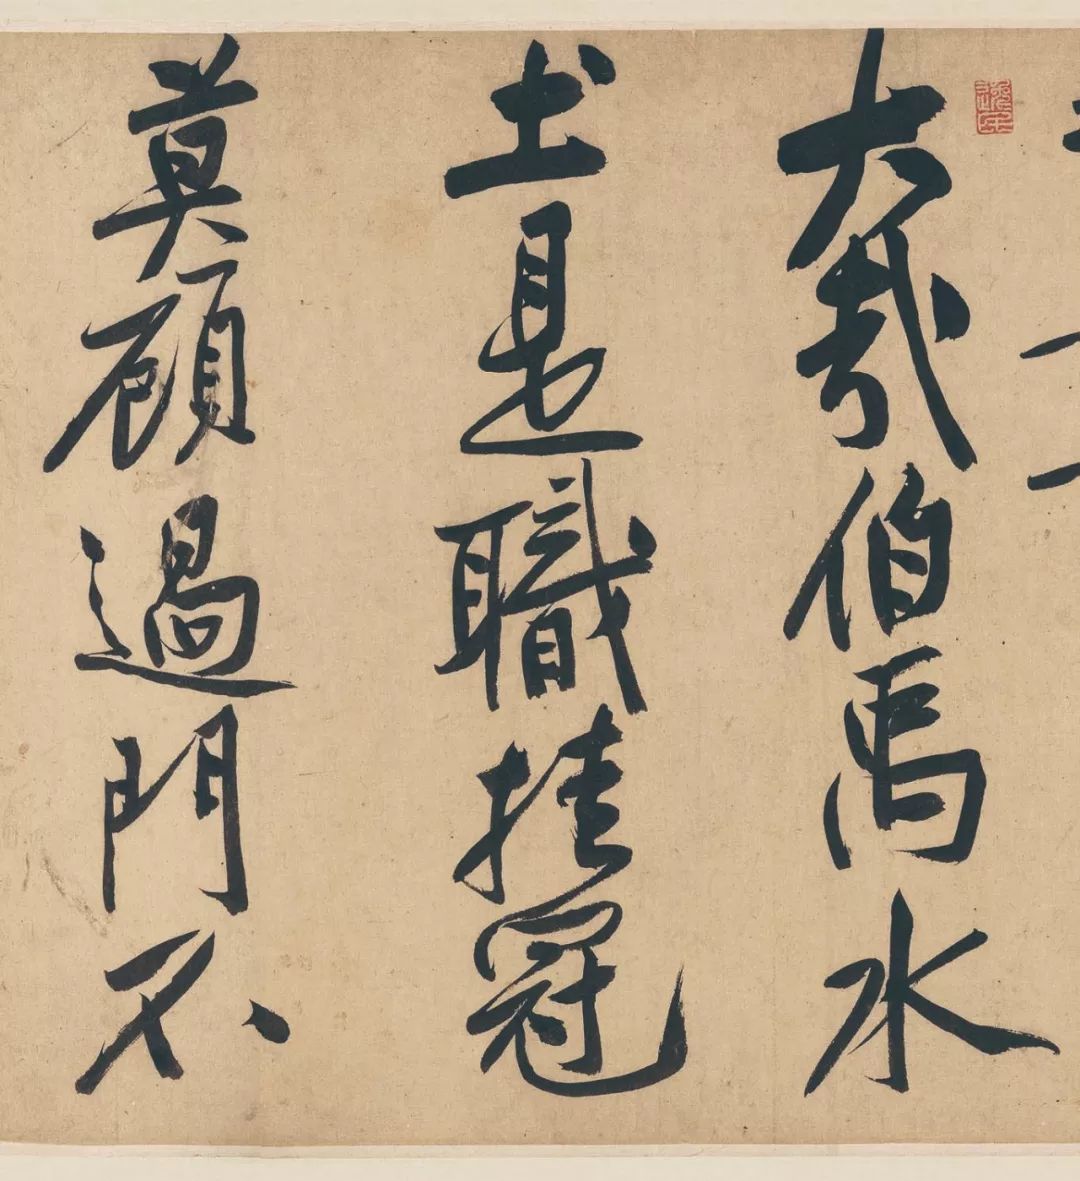 大哉伯禹水
土是職挂冠
莫顧過門不